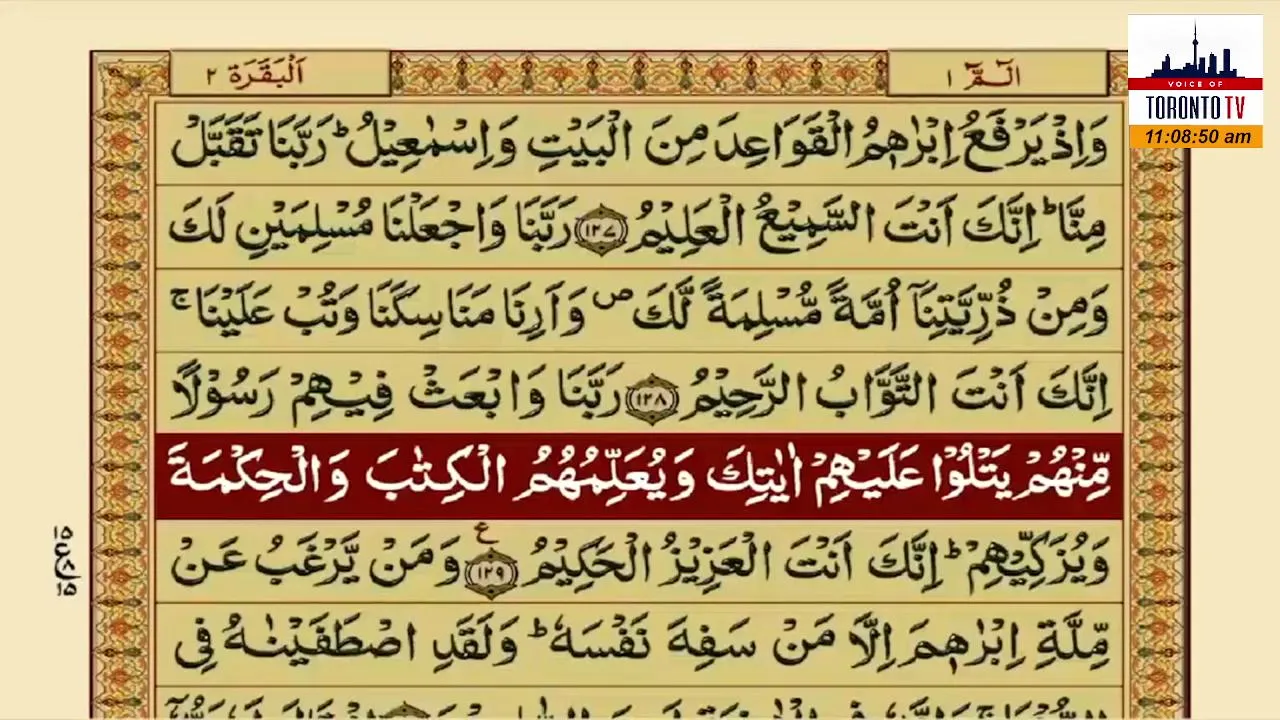 الٓمّٓ ١
اَلْبَقَرَة ٢
VOICE OF
TORONTO TV
11:08:50 am
وَاِذْ يَرْفَعُ اِبْرٰهٖمُ الْقَوَاعِدَ مِنَ الْبَيْتِ وَاِسْمٰعِيْلُ ؕ رَبَّنَا تَقَبَّلْ
مِنَّا ؕ اِنَّكَ اَنْتَ السَّمِيْعُ الْعَلِيْمُ ۝١٢٧ رَبَّنَا وَاجْعَلْنَا مُسْلِمَيْنِ لَكَ
وَمِنْ ذُرِّيَّتِنَاۤ اُمَّةً مُّسْلِمَةً لَّكَ ص وَاَرِنَا مَنَاسِكَنَا وَتُبْ عَلَيْنَا ۚ
اِنَّكَ اَنْتَ التَّوَّابُ الرَّحِيْمُ ۝١٢٨ رَبَّنَا وَابْعَثْ فِيْهِمْ رَسُوْلًا
مِّنْهُمْ يَتْلُوْا عَلَيْهِمْ اٰيٰتِكَ وَيُعَلِّمُهُمُ الْكِتٰبَ وَالْحِكْمَةَ
وَيُزَكِّيْهِمْ ؕ اِنَّكَ اَنْتَ الْعَزِيْزُ الْحَكِيْمُ ۝١٢٩ ع وَمَنْ يَّرْغَبُ عَنْ
مِّلَّةِ اِبْرٰهٖمَ اِلَّا مَنْ سَفِهَ نَفْسَهٗ ؕ وَلَقَدِ اصْطَفَيْنٰهُ فِى